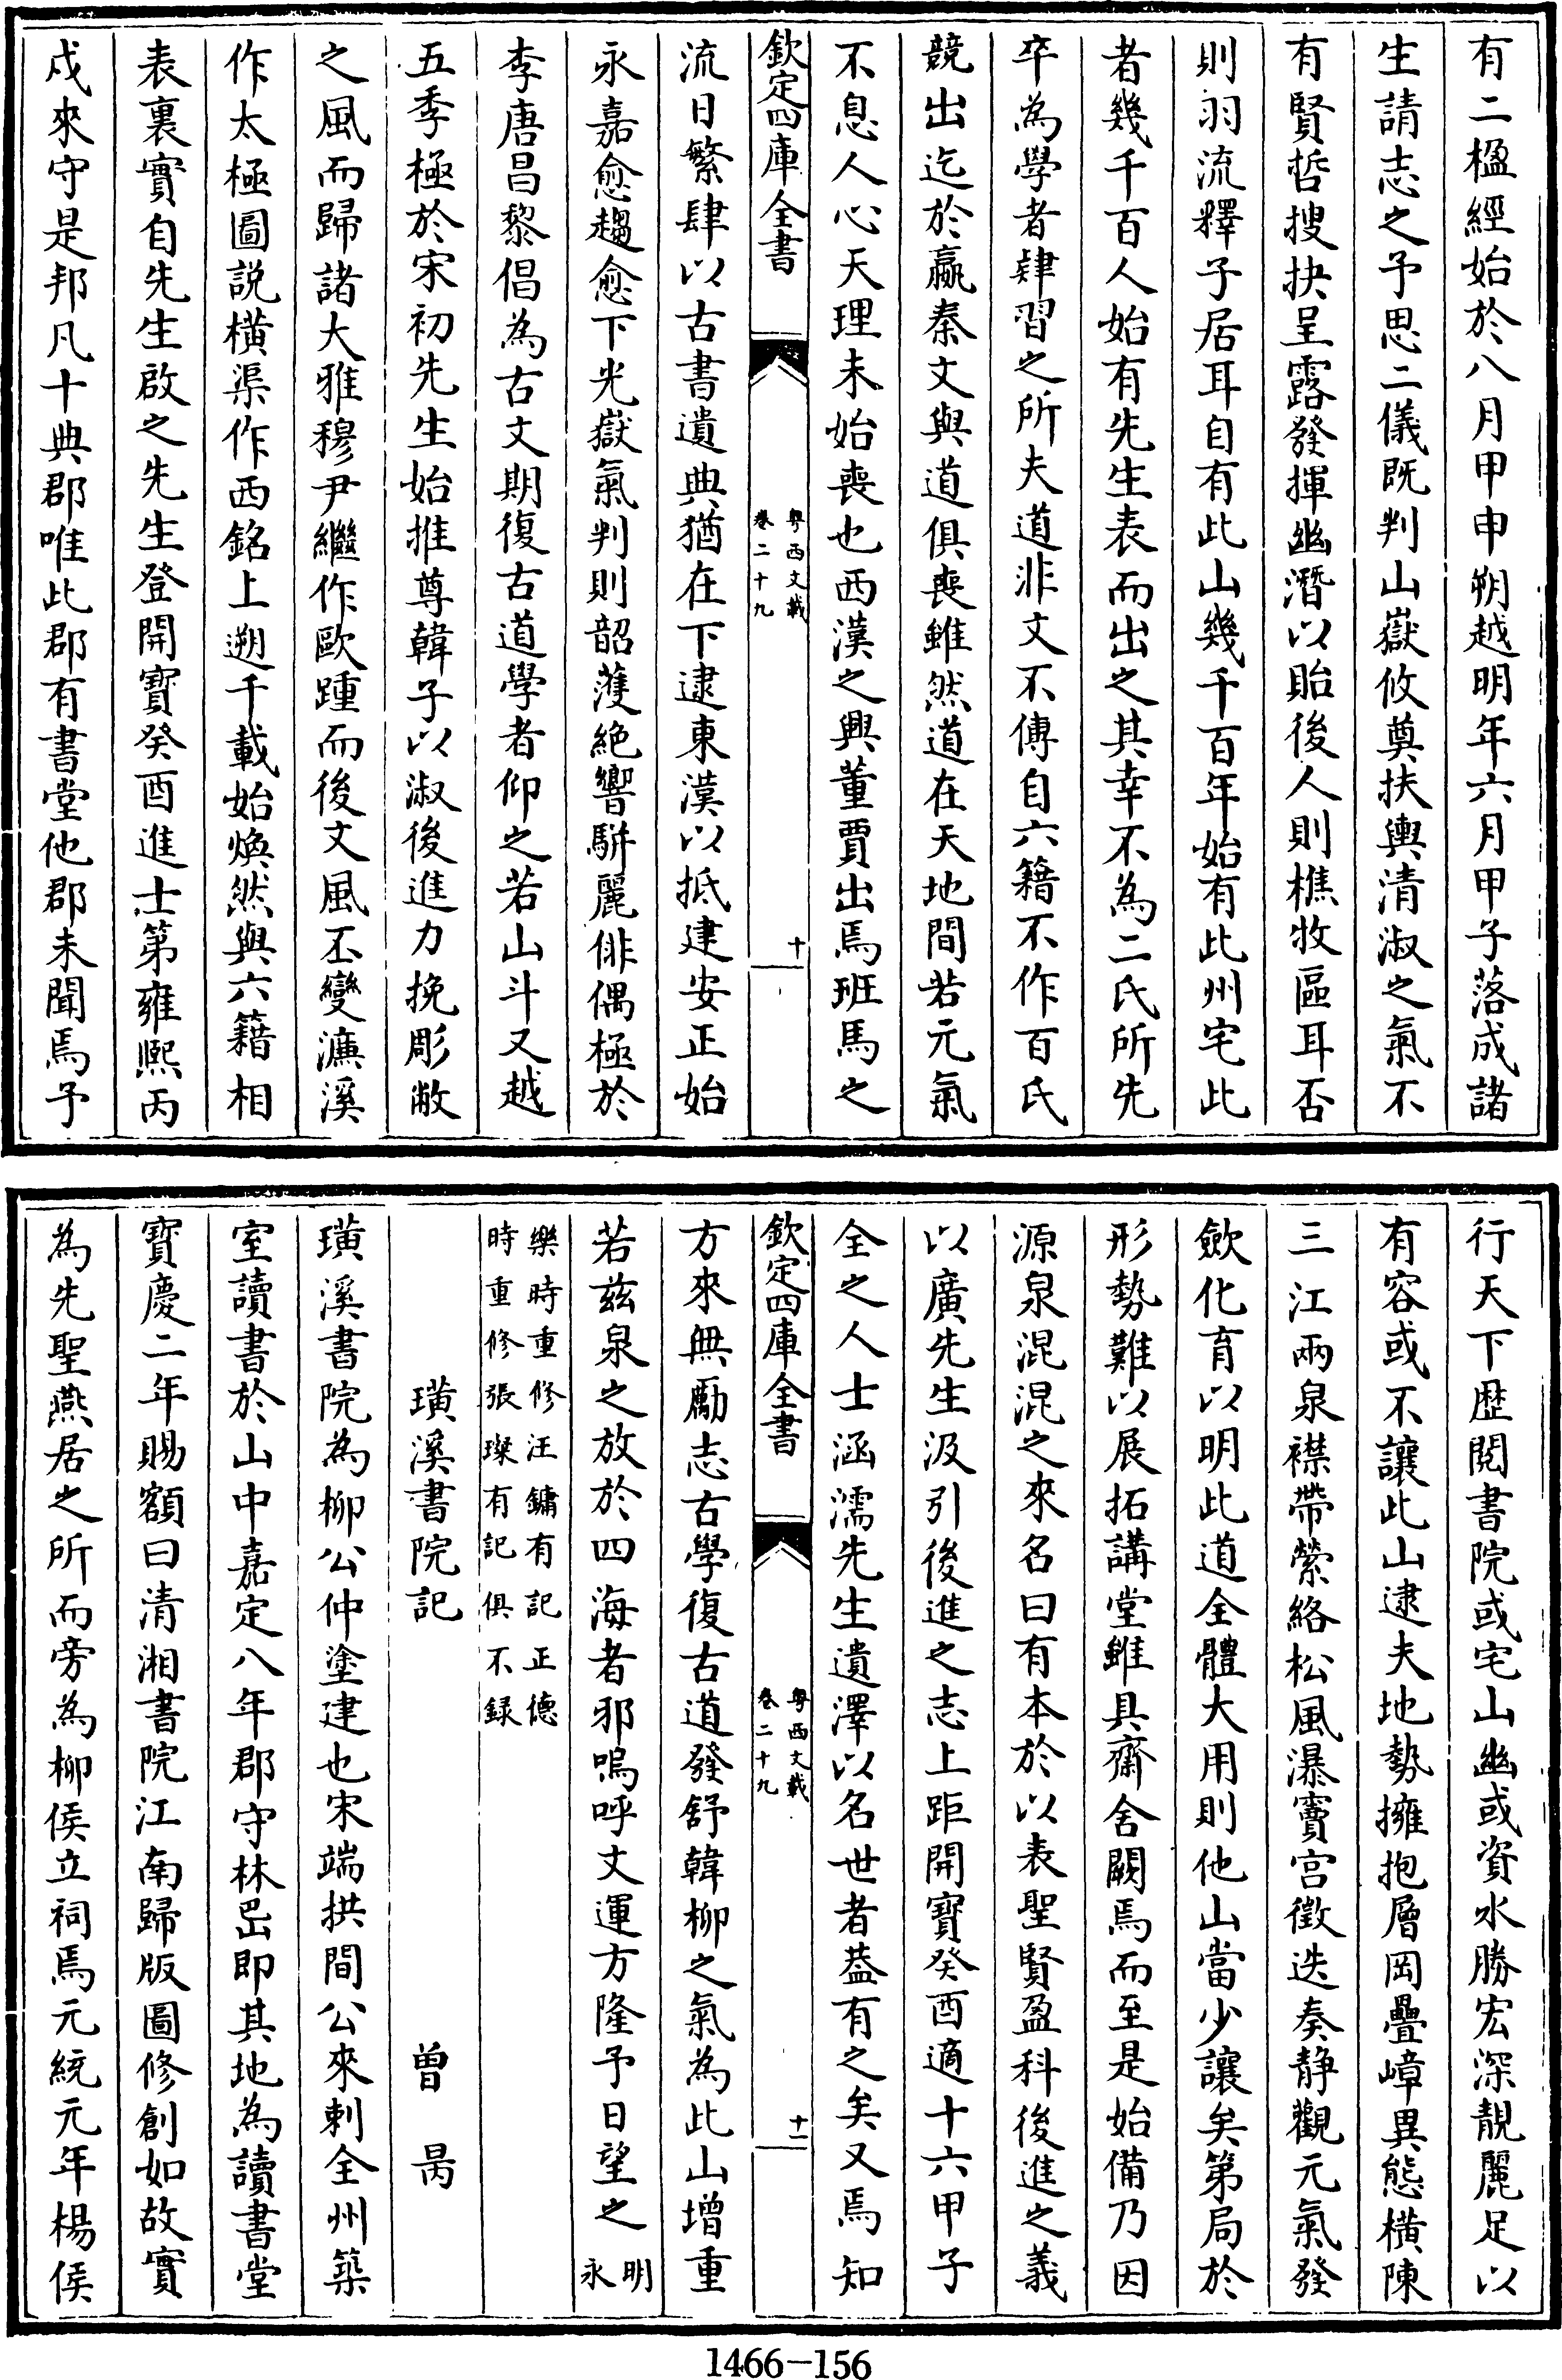 有二楹經始於八月甲申朔越明年六月甲子落成諸
生請志之予思二儀既判山嶽攸奠扶輿清淑之氣不
有賢哲搜抉呈露發揮幽潛以貽後人則樵牧區耳否
則羽流釋子居耳自有此山幾千百年始有此州宅此
者幾千百人始有先生表而出之其幸不為二氏所先
卒為學者肄習之所夫道非文不傳自六籍不作百氏
競出迄於嬴秦文與道俱喪雖然道在天地間若元氣
不息人心天理未始喪也西漢之興董賈出焉班馬之
欽定四庫全書
粵西文載
卷二十九
十
流日繁肆以古書遺典猶在下逮東漢以抵建安正始
永嘉愈趨愈下光嶽氣判則韶濩絶響駢麗俳偶極於
李唐昌黎倡為古文期復古道學者仰之若山斗又越
五季極於宋初先生始推尊韓子以淑後進力挽彫敝
之風而歸諸大雅穆尹繼作歐踵而後文風丕變濂溪
作太極圖説橫渠作西銘上遡千載始煥然與六籍相
表裏實自先生啟之先生登開寶癸酉進士第雍熙丙
戌來守是邦凡十典郡唯此郡有書堂他郡未聞焉予
行天下歷閱書院或宅山幽或資水勝宏深靚麗足以
有容或不讓此山逮夫地勢擁抱層岡疊嶂異態橫陳
三江兩泉襟帶縈絡松風瀑竇宫徵迭奏静觀元氣發
歛化育以明此道全體大用則他山當少讓矣第局於
形勢難以展拓講堂雖具齋舍闕焉而至是始備乃因
源泉混混之來名曰有本於以表聖賢盈科後進之義
以廣先生汲引後進之志上距開寶癸酉適十六甲子
全之人士涵濡先生遺澤以名世者葢有之矣又焉知
欽定四庫全書
粵西文載
卷二十九
十一
方來無勵志古學復古道發舒韓柳之氣為此山增重
若兹泉之放於四海者邪嗚呼文運方隆予日望之明
永
樂時重修汪鏞有記正德
時重修張璨有記俱不録
璜溪書院記 曾昺
璜溪書院為柳公仲塗建也宋端拱間公來刺全州築
室讀書於山中嘉定八年郡守林岊即其地為讀書堂
寶慶二年賜額曰清湘書院江南歸版圖修創如故實
為先聖燕居之所而旁為柳侯立祠焉元統元年楊侯
1466-156